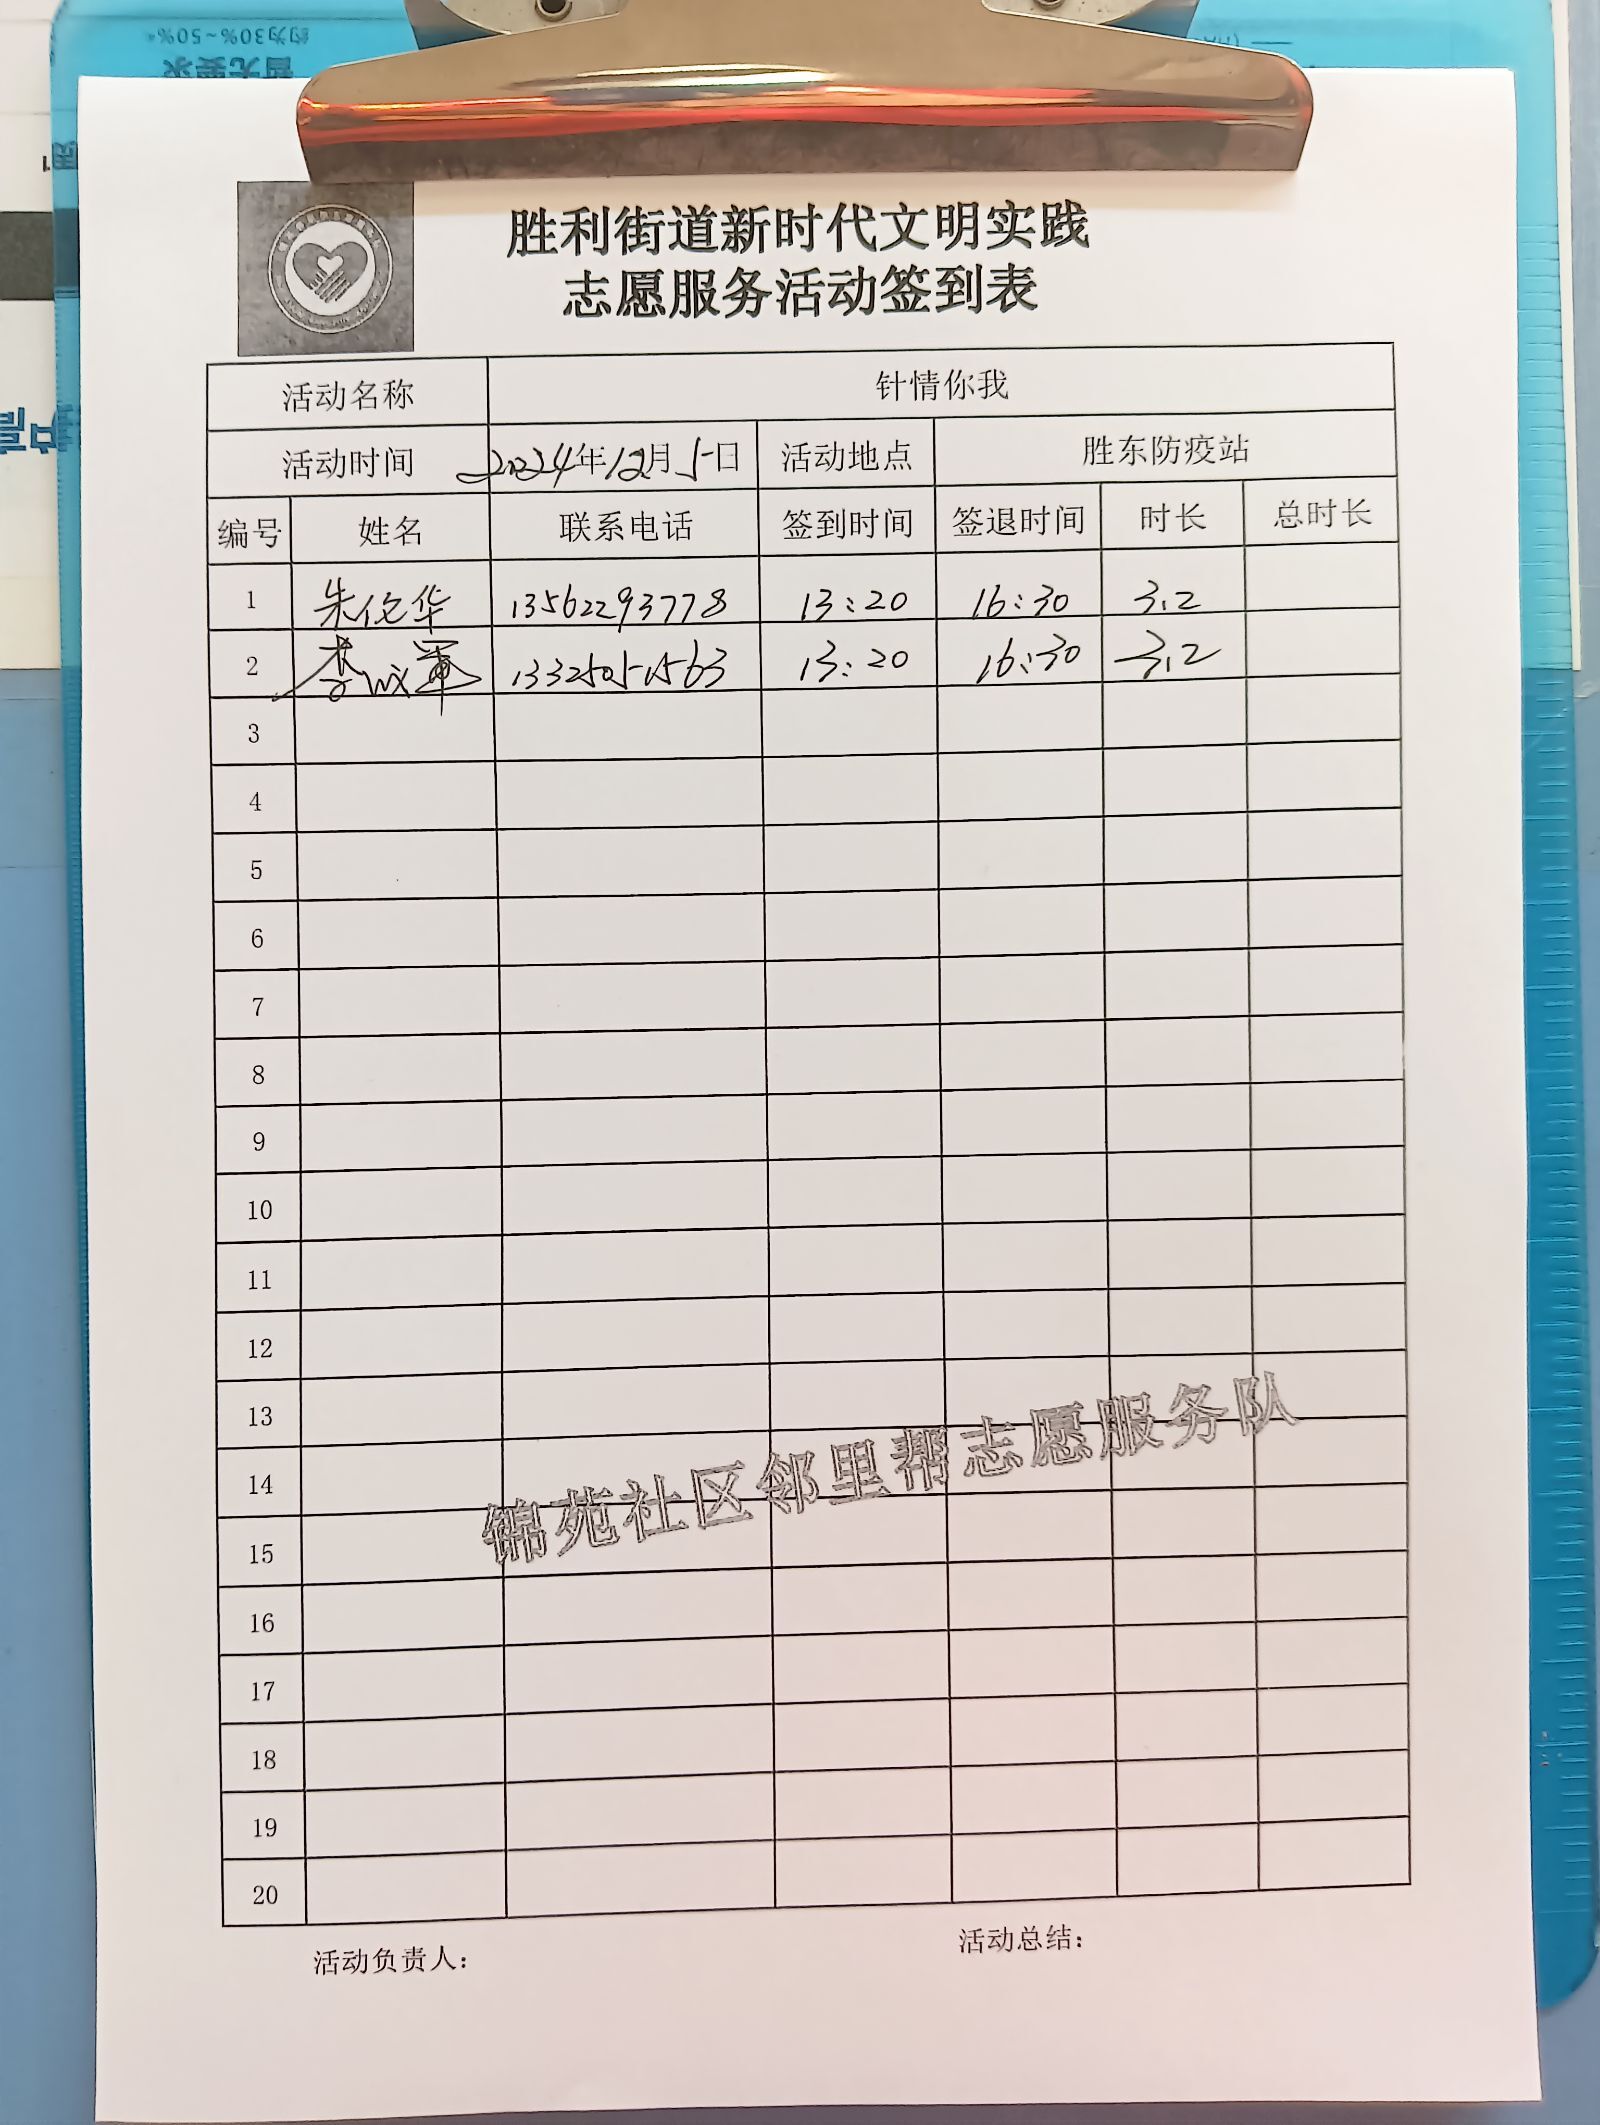 约为30%~50%。
暂无要求
胜利街道新时代文明实践
志愿服务活动签到表
活动名称 针情你我
活动时间 2024年12月5日 活动地点 胜东防疫站
编号 姓名 联系电话 签到时间 签退时间 时长 总时长
1 朱伦华 13562293778 13:20 16:30 3.2
2 李成军 13325051563 13:20 16:30 3.2
3
4
5
6
7
8
9
10
11
12
13
14
15
16
17
18
19
20
锦苑社区邻里帮志愿服务队
活动负责人: 活动总结: